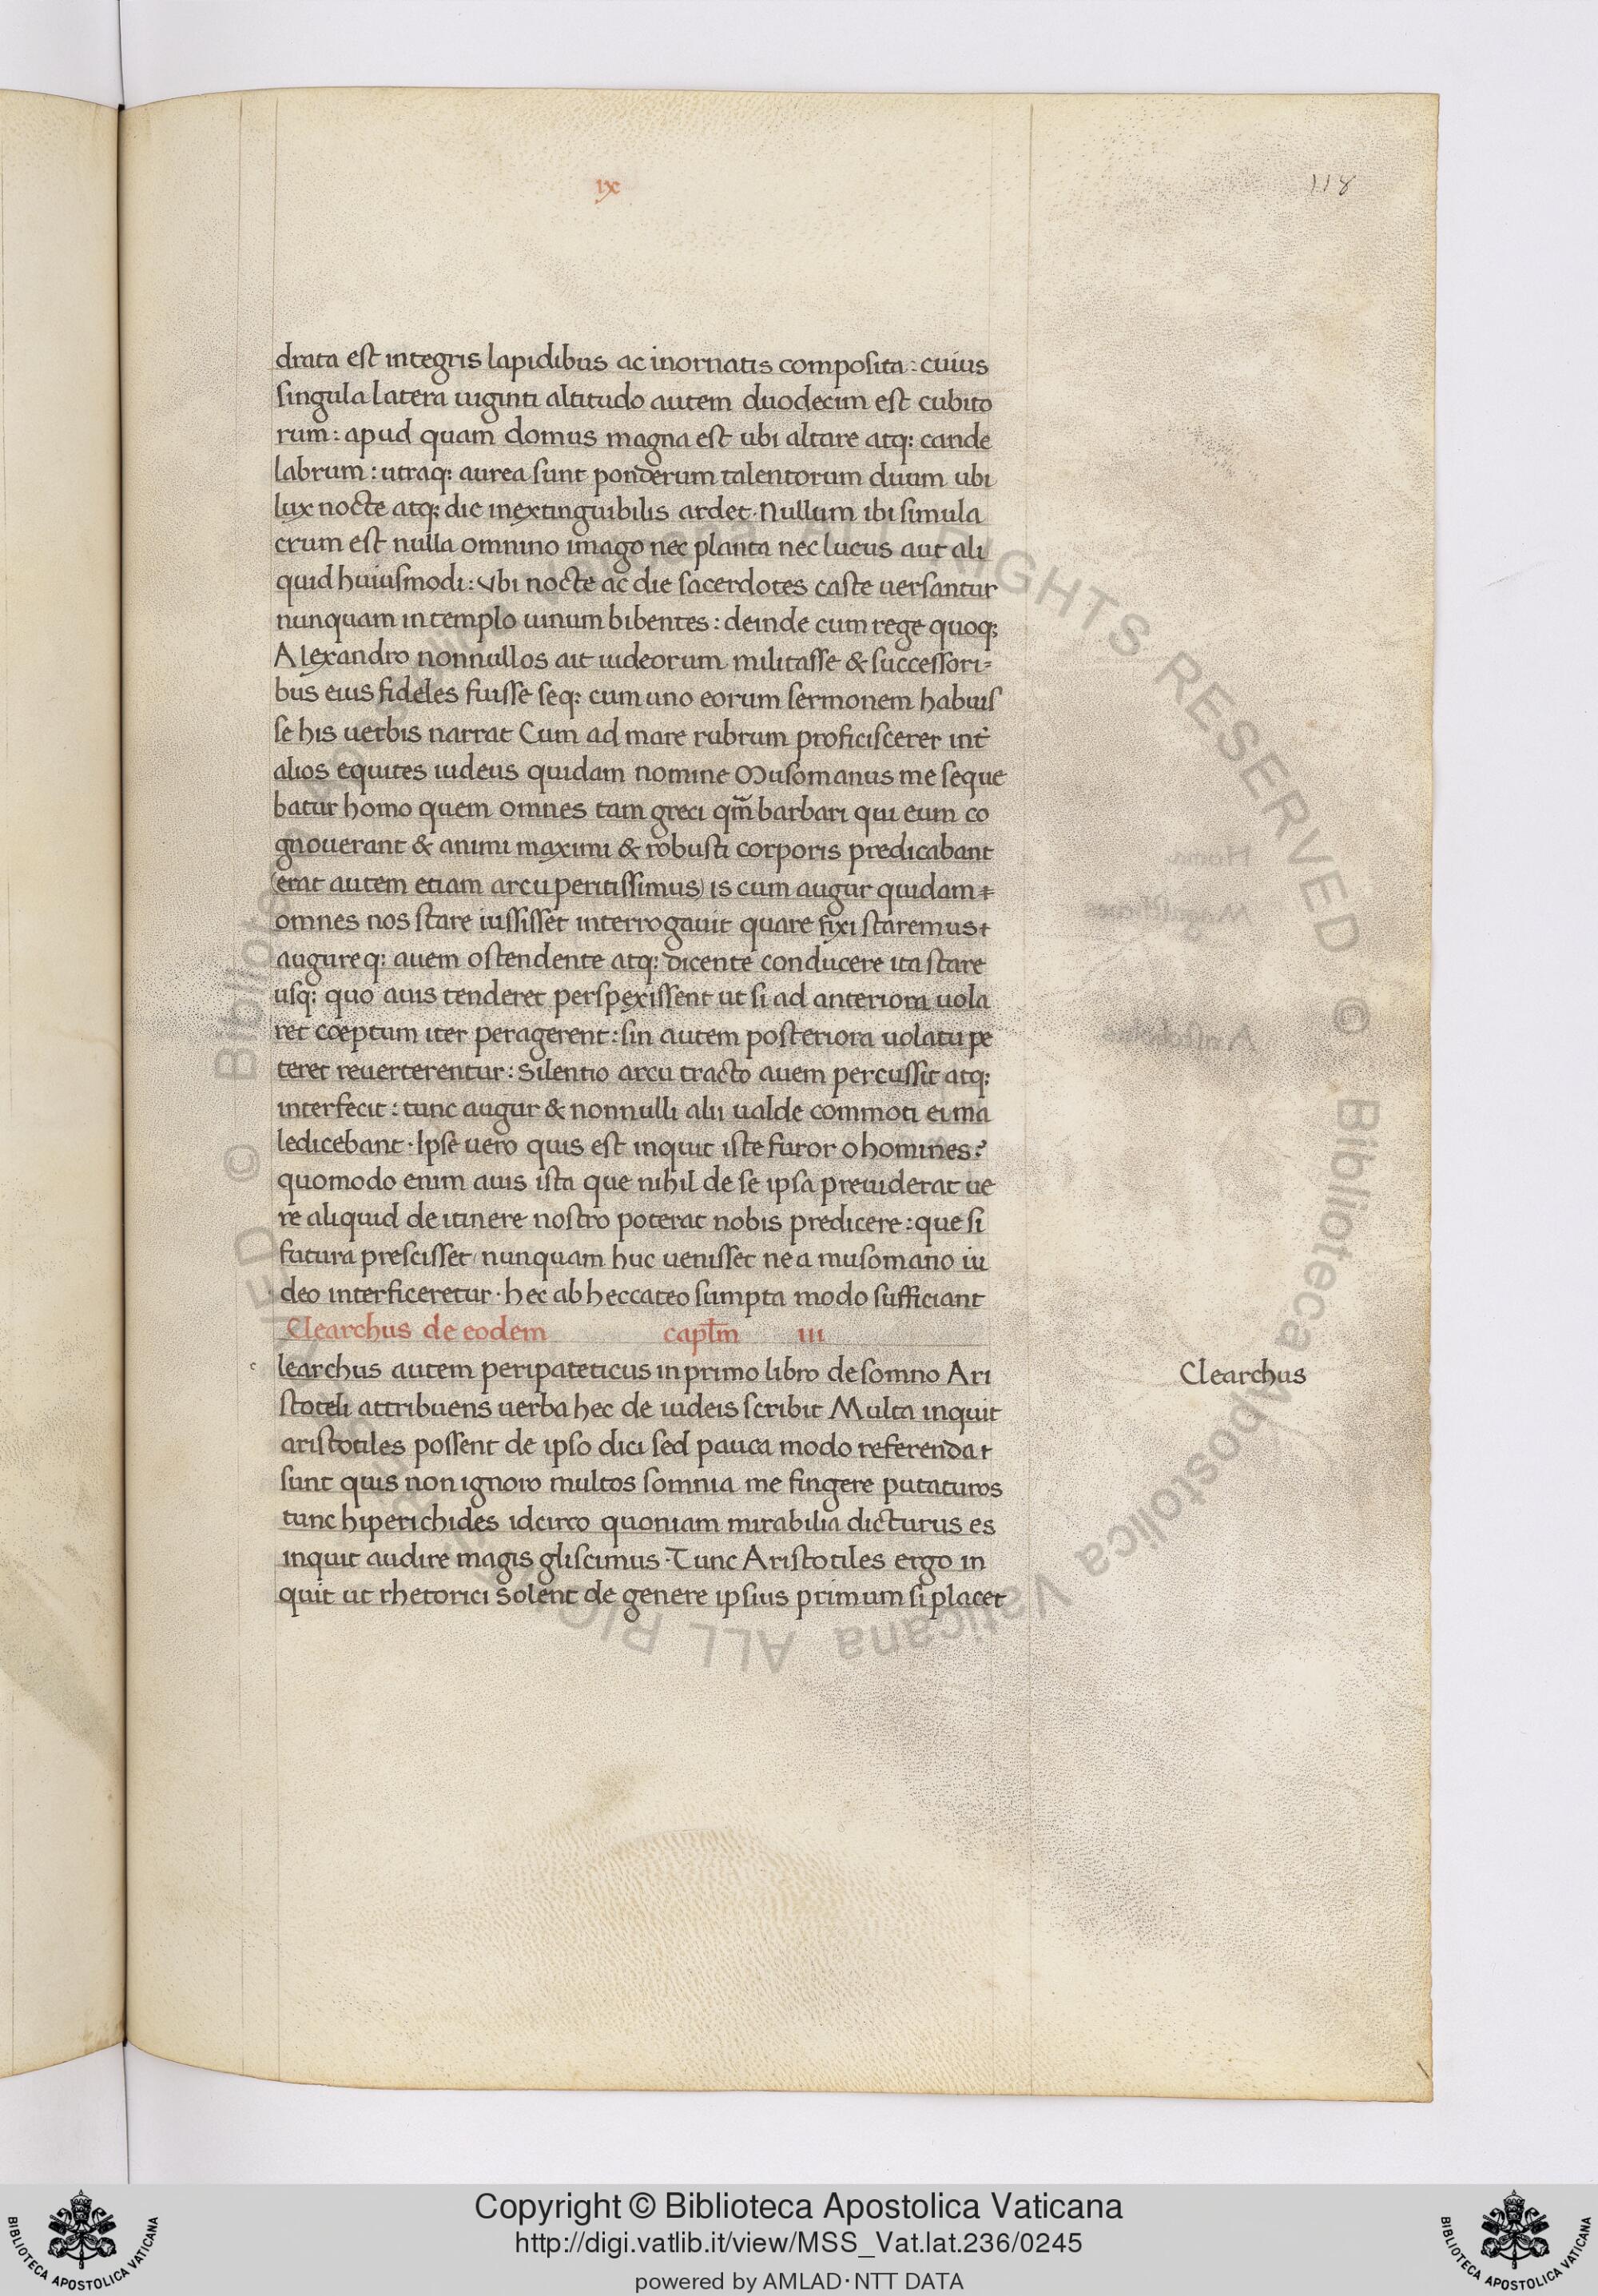 ix
118
drata est integris lapidibus ac inornatis composita: cuius
singula latera uiginti altitudo autem duodecim est cubito
rum: apud quam domus magna est ubi altare atq: cande
labrum: utraq: aurea sunt ponderum talentorum duum ubi
lux nocte atq: die inextinguibilis ardet. Nullum ibi simula
crum est nulla omnino imago nec planta nec lucus aut ali
quid huiusmodi: Vbi nocte ac die sacerdotes caste uersantur
nunquam in templo uinum bibentes: deinde cum rege quoq:
Alexandro nonnullos ait iudeorum militasse & successori=
bus eius fideles fuisse seq: cum uno eorum sermonem habuis
se his uerbis narrat Cum ad mare rubrum proficiscerer int̉
alios equites iudeus quidam nomine Musomanus me seque
batur homo quem omnes tam greci qm̄ barbari qui eum co
gnouerant & animi maximi & robusti corporis predicabant
(erat autem etiam arcu peritissimus) is cum augur quidam
omnes nos stare iussisset interrogauit quare fixi staremus
augureq: auem ostendente atq: dicente conducere ita stare
usq: quo auis tenderet perspexissent ut si ad anteriora uola
ret cœptum iter peragerent: sin autem posteriora uolatu pe
teret reuerterentur: Silentio arcu tracto auem percussit atq:
interfecit: tunc augur & nonnulli alii ualde commoti ei ma
ledicebant. Ipse uero quis est inquit iste furor o homines?
quomodo enim auis ista que nihil de se ipsa preuiderat ue
re aliquid de itinere nostro poterat nobis predicere: que si
futura prescisset nunquam huc uenisset ne a musomano iu
deo interficeretur. hec ab heccateo sumpta modo sufficiant
Clearchus de eodem capl̄m iii
c learchus autem peripateticus in primo libro de somno Ari
Clearchus
stoteli attribuens uerba hec de iudeis scribit Multa inquit
aristotiles possent de ipso dici sed pauca modo referenda
sunt quis non ignoro multos somnia me fingere putaturos
tunc hiperichides idcirco quoniam mirabilia dicturus es
inquit audire magis gliscimus. Tunc Aristotiles ergo in
quit ut rhetorici solent de genere ipsius primum si placet
© Biblioteca Apostolica Vaticana ALL RIGHTS RESERVED © Biblioteca Apostolica Vaticana ALL RIGHTS RESERVED
Copyright © Biblioteca Apostolica Vaticana
http://digi.vatlib.it/view/MSS_Vat.lat.236/0245
powered by AMLAD·NTT DATA
BIBLIOTECA APOSTOLICA VATICANA
BIBLIOTECA APOSTOLICA VATICANA